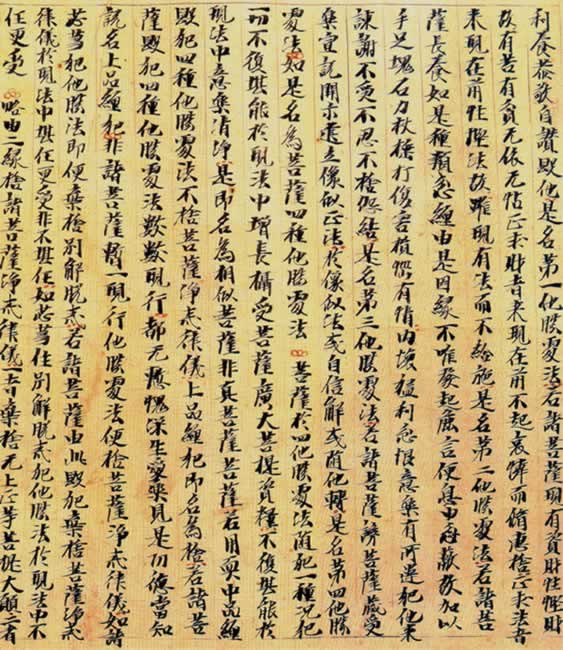 利養恭敬自讚毀他是名第一他勝處法若諸菩薩現有資財性慳財
故有苦有貧无依无怙正求財者來現在前不起哀憐而脩惠捨正求法者
來現在前性慳法故雖現有法而不給施是名第二他勝處法若諸菩
薩長養如是種類忿纏由是因緣不唯發起麁言便息由忿蔽故加以
手足塊石刀杖捶打傷害損惱有情內懷猛利忿恨意樂有所違犯他來
諫謝不受不忍不捨怨結是名第三他勝處法若諸菩薩謗菩薩藏愛
樂宣說開示建立像似正法於像似法或自信解或隨他轉是名第四他勝
處法如是名為菩薩四種他勝處法 菩薩於四他勝處法隨犯一種況犯
一切不復堪能於現法中增長攝受菩薩廣大菩提資糧不復堪能於
現法中意樂清淨是即名為相似菩薩非真菩薩菩薩若用耎中品纏
毀犯四種他勝處法不捨菩薩淨戒律儀上品纏犯即名為捨若諸菩
薩毀犯四種他勝處法數數現行都无慚愧深生愛樂見是功德當知
說名上品纏犯非諸菩薩暫一現行他勝處法便捨菩薩淨戒律儀如諸
苾芻犯他勝法即便棄捨別解脫戒若諸菩薩由此毀犯棄捨菩薩淨戒
律儀於現法中堪任更受非不堪任如苾芻住別解脫戒犯他勝法於現法中不
任更受 略由二緣捨諸菩薩淨戒律儀一者棄捨无上正等菩提大願二者